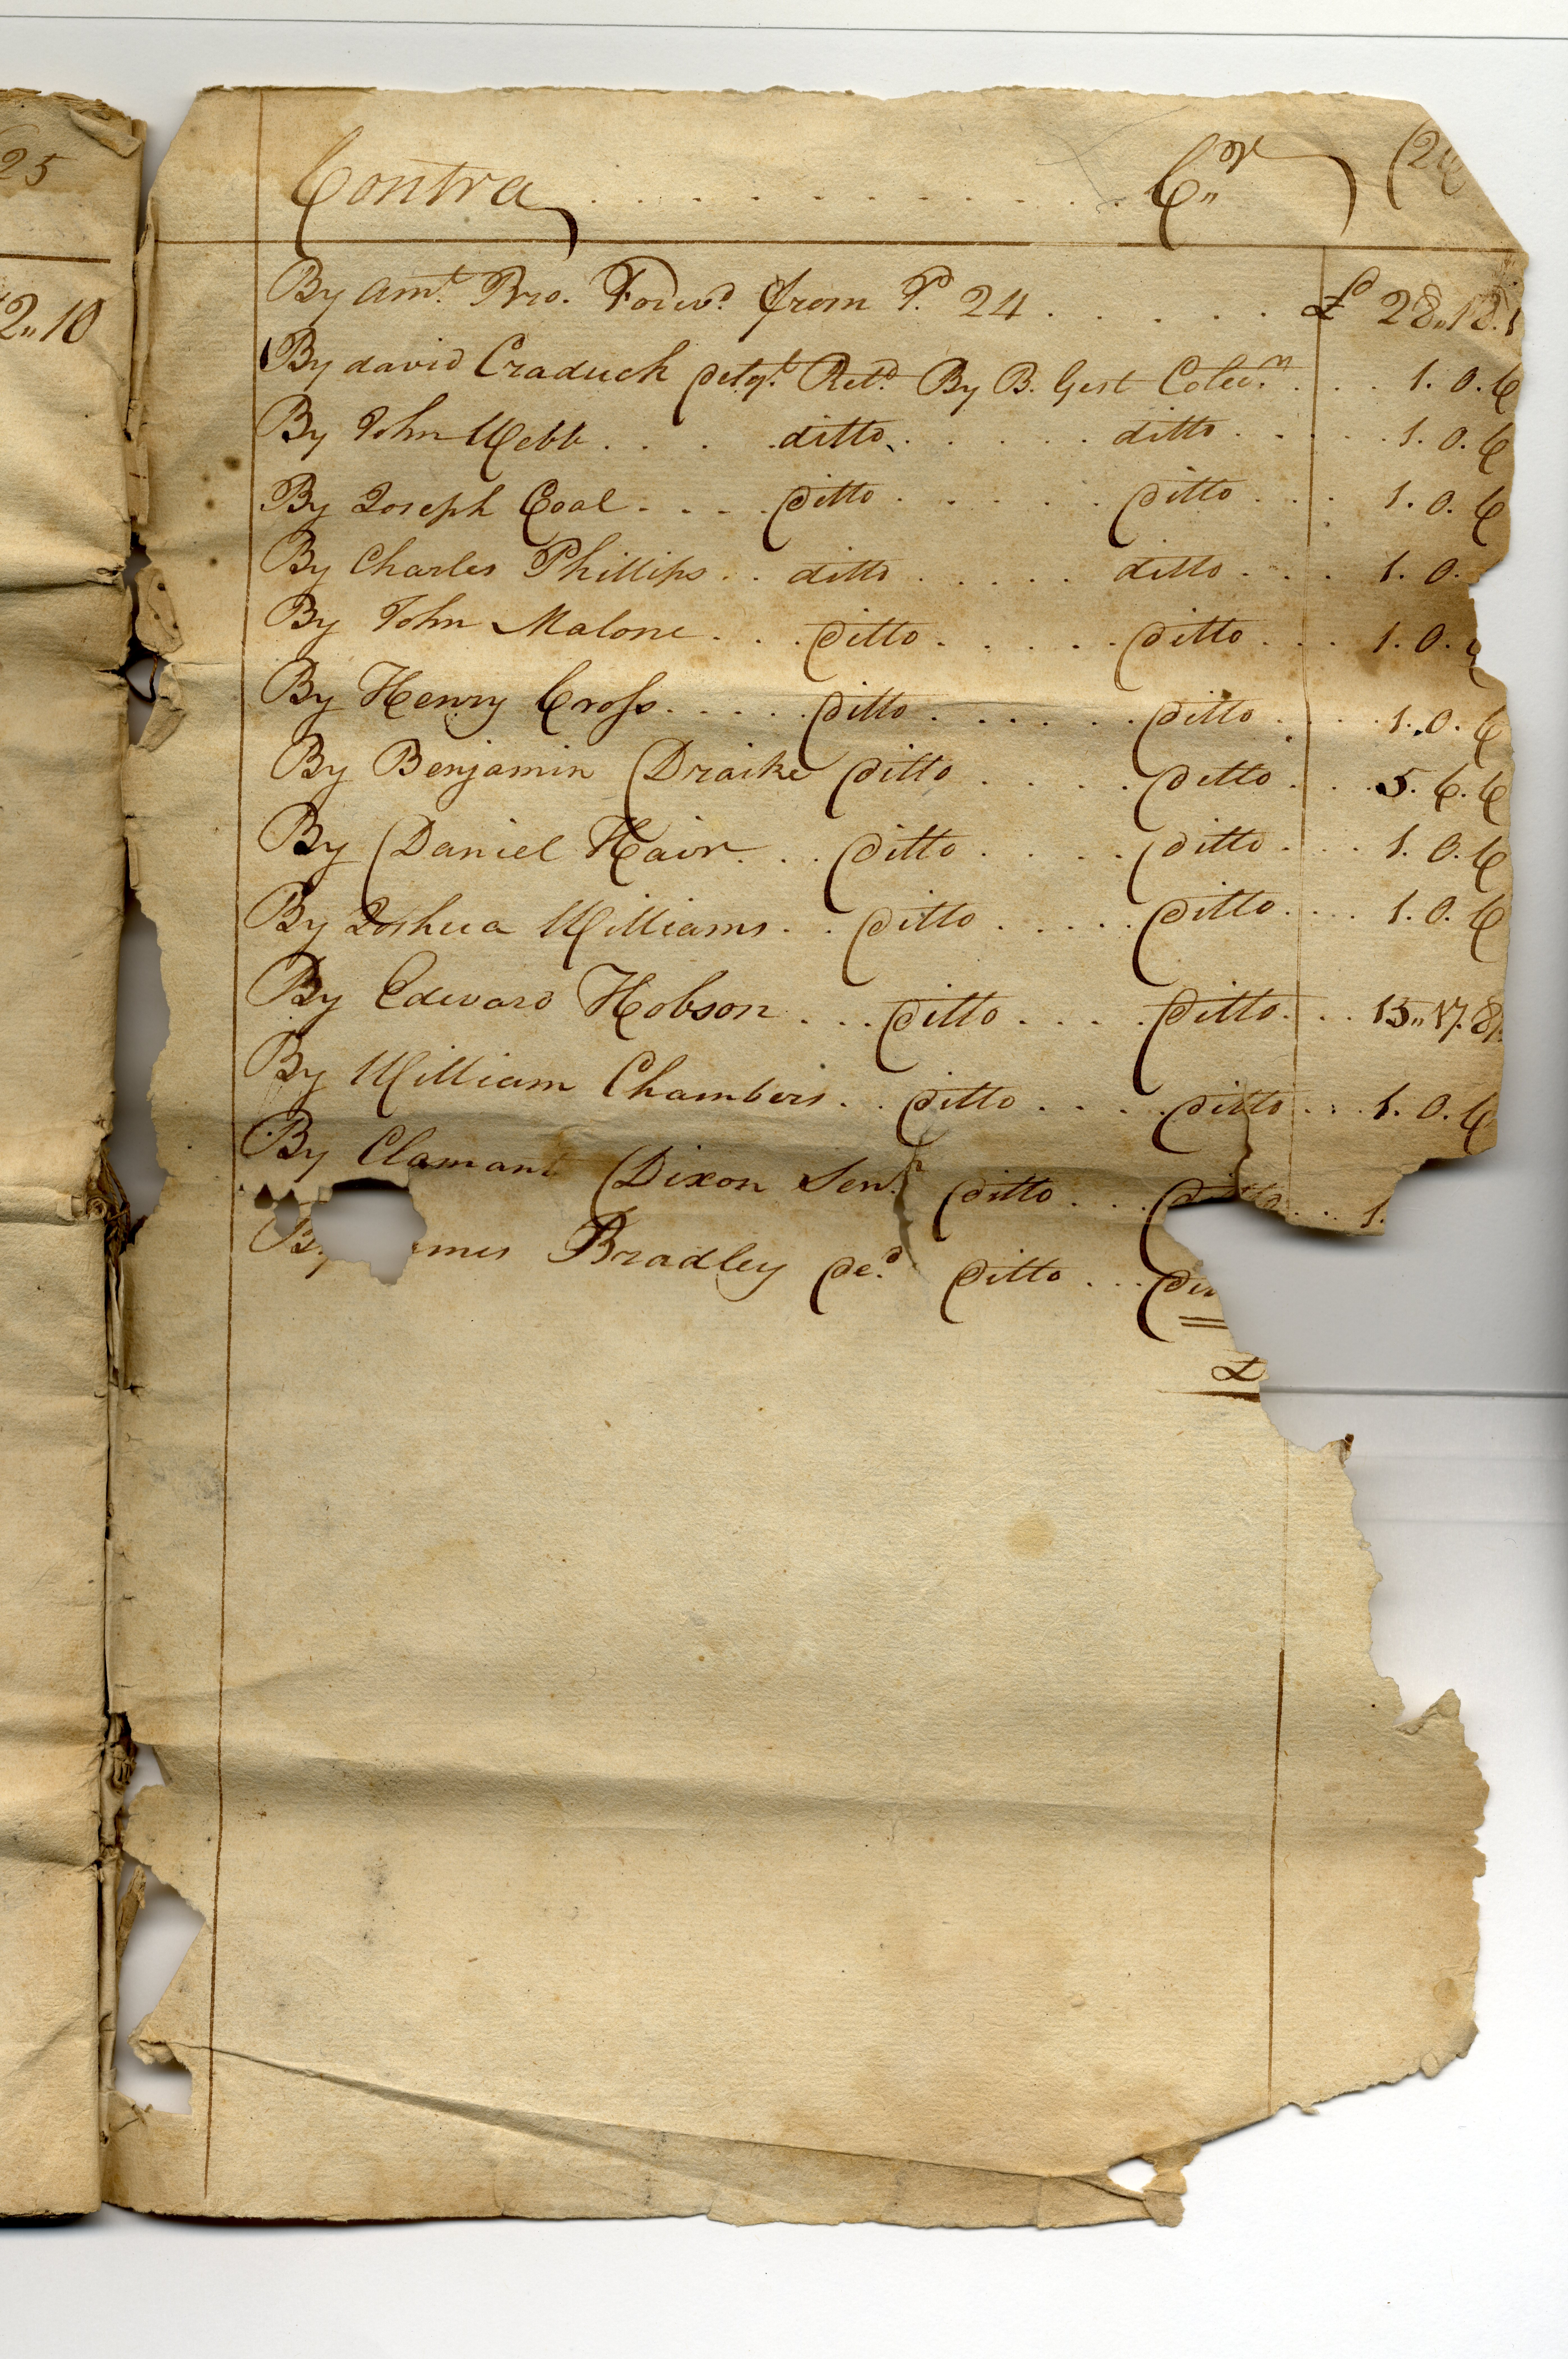 25
2,, 10
Contra . . . . . . . . . . . Cr (26
By Amt. Bro. Forwd. from P. 24 . . . . . £ 28,, 18. 1
By david Craduck delqt. Retd. By B. Gist Colecn. . . . 1. 0. 6
By John Webb . . . . ditto . . . . . ditto . . . . 1. 0. 6
By Joseph Coal . . . . ditto . . . . . ditto . . . 1. 0. 6
By Charles Phillips . . ditto . . . . . ditto . . . 1. 0.
By John Malone . . . ditto . . . . . ditto . . . 1. 0. 6
By Henry Cross . . . . . ditto . . . . . . ditto . . . . 1. 0. 6
By Benjamin Draike ditto . . . . ditto . . . 5. 6. 6
By Daniel Hair . . . ditto . . . . ditto . . . 1. 0. 6
By Joshua Williams . . ditto . . . . . ditto . . . . 1. 0. 6
By Edward Hobson . . . ditto . . . . ditto . . . 15,, 17. 8
By William Chambers . . ditto . . . . ditto . . . 1. 0. 6
By Clamant Dixon Senr. ditto . . . ditto . . . 1.
By mes Bradley ded. ditto . . . dit
£